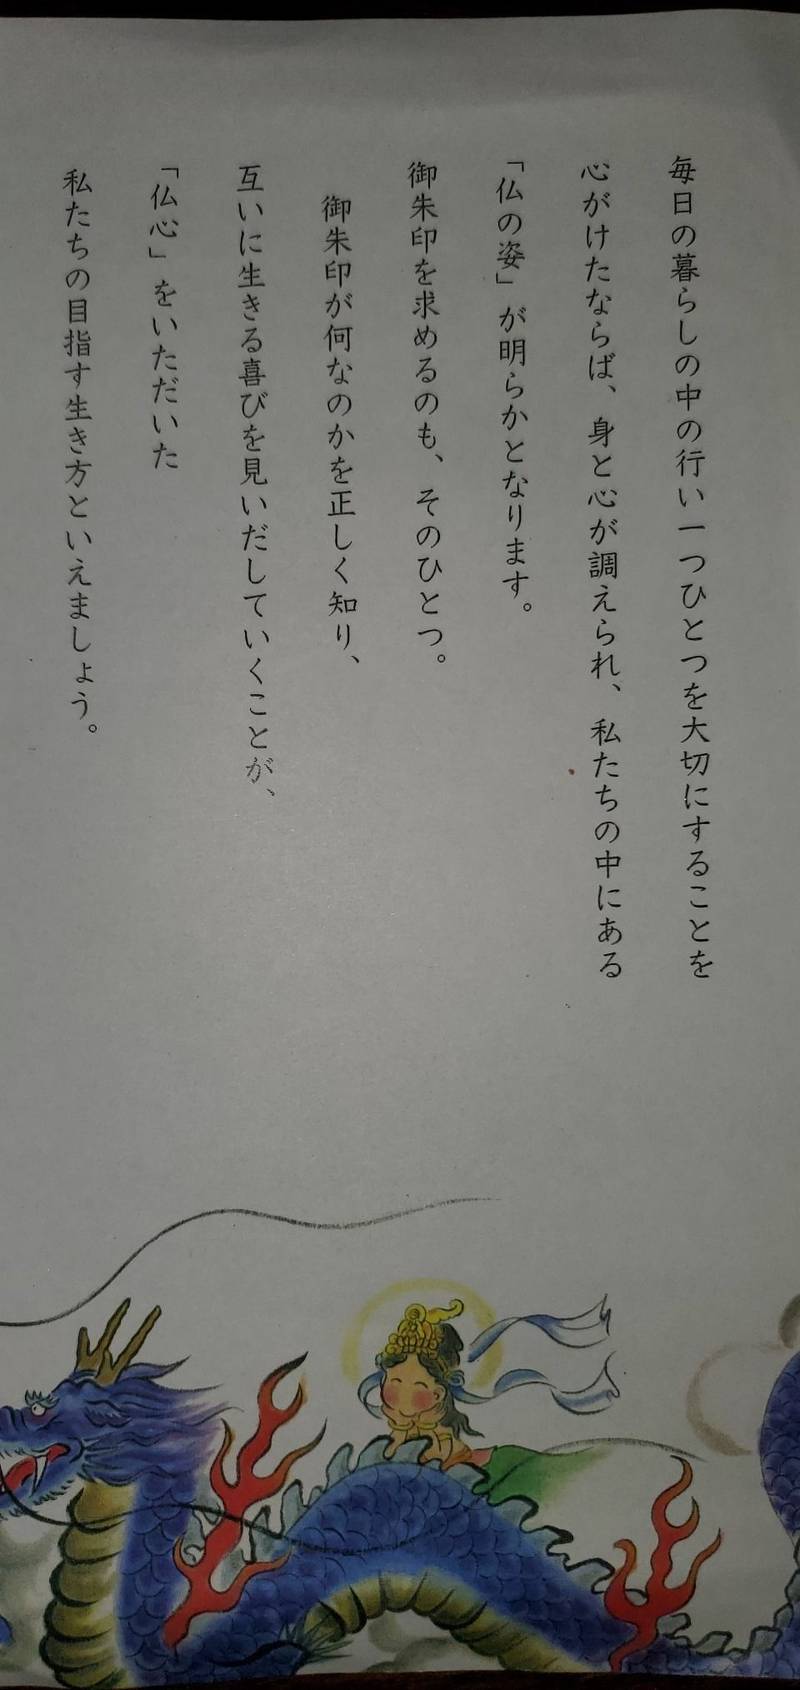 毎日の暮らしの中の行い一つひとつを大切にすることを
心がけたならば、身と心が調えられ、私たちの中にある
「仏の姿」が明らかとなります。
御朱印を求めるのも、そのひとつ。
御朱印が何なのかを正しく知り、
互いに生きる喜びを見いだしていくことが、
「仏心」をいただいた
私たちの目指す生き方といえましょう。